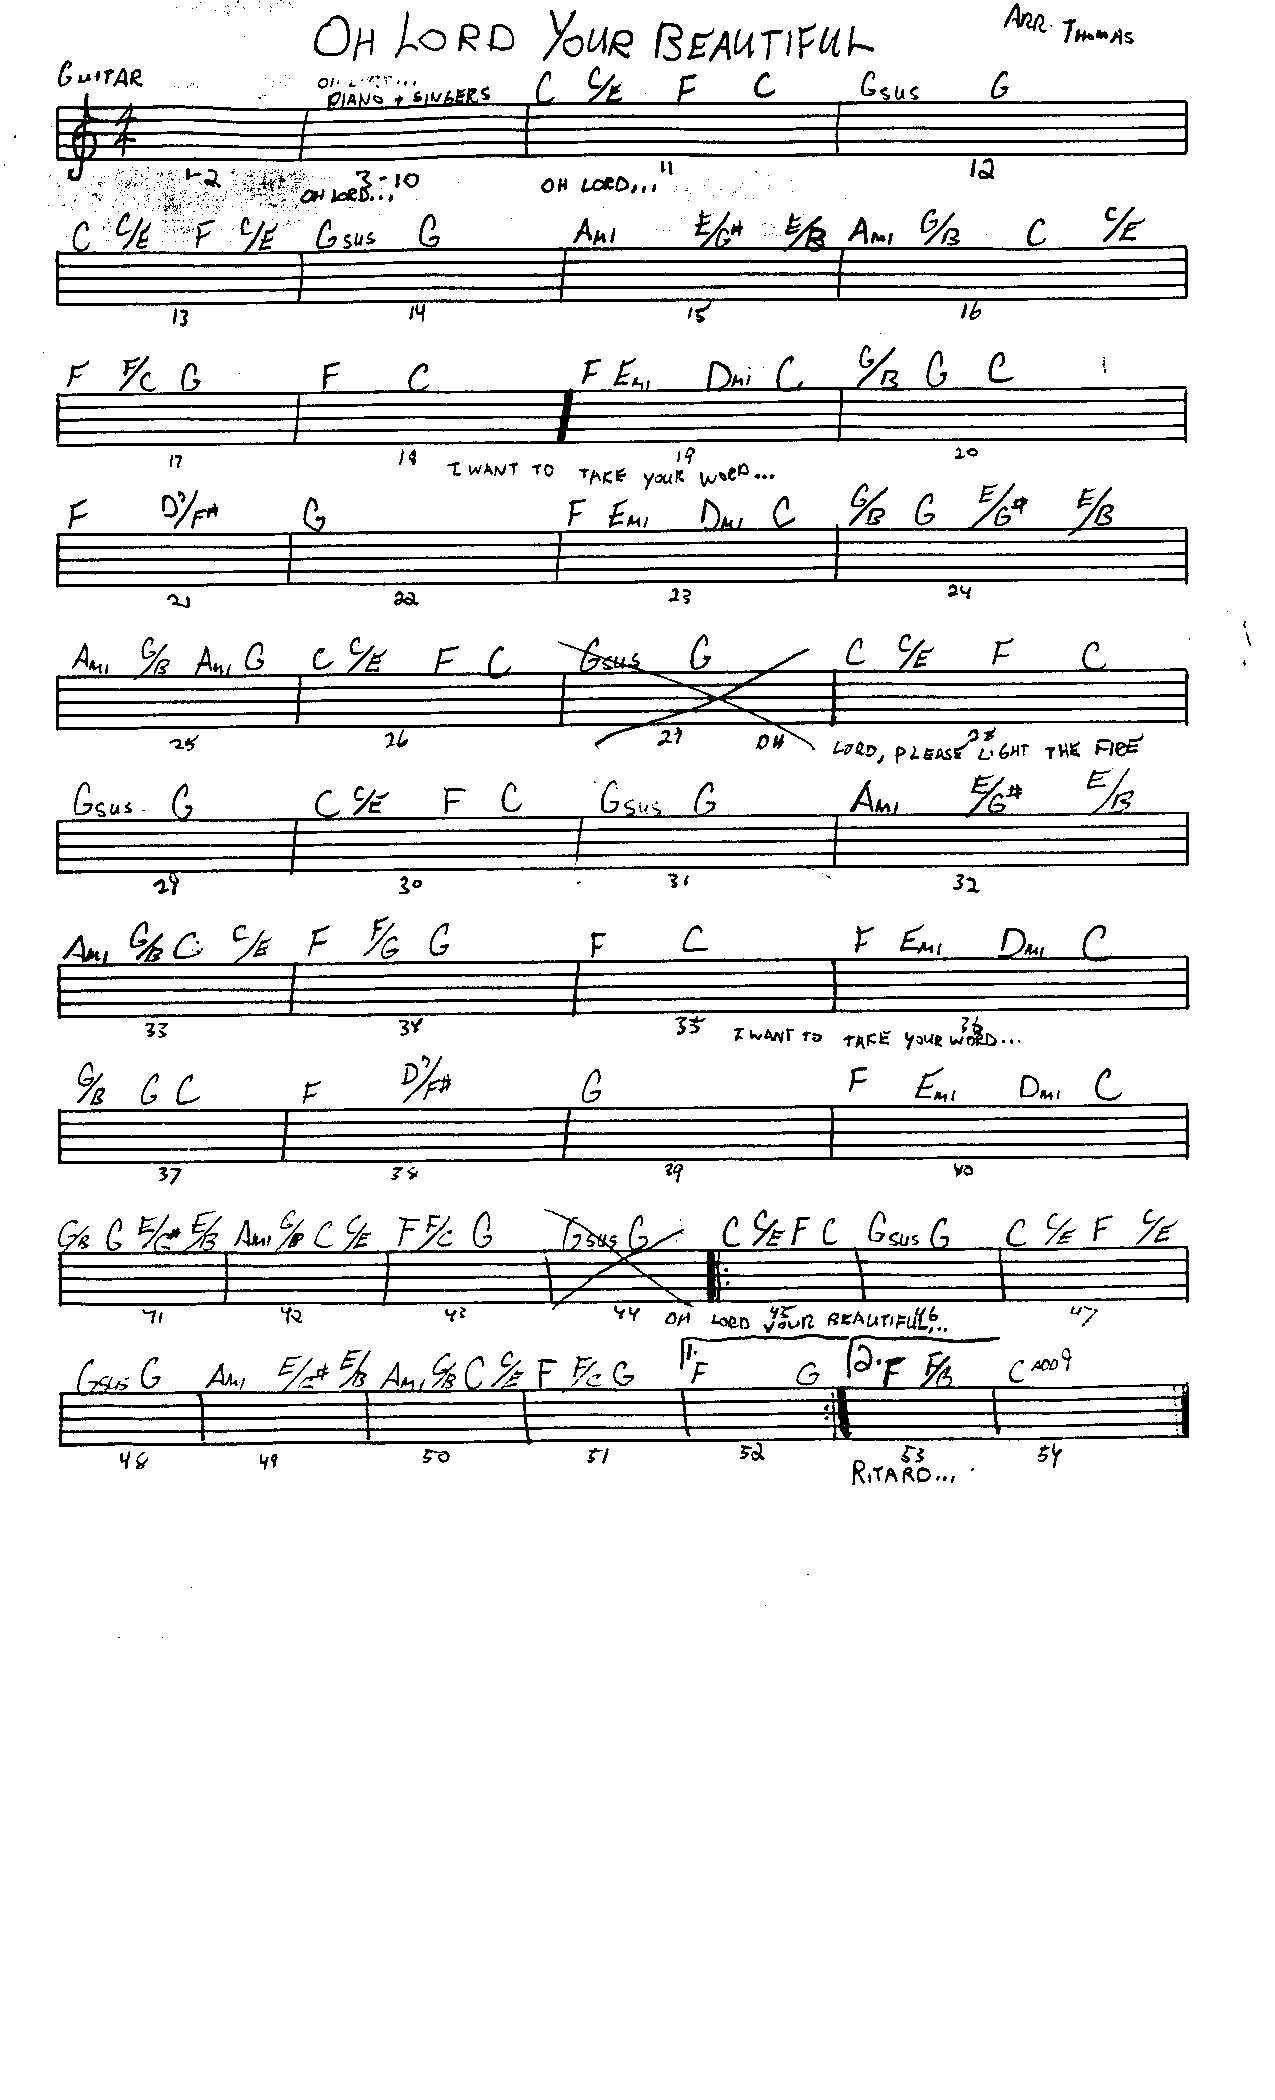 OH LORD YOUR BEAUTIFUL
ARR. THOMAS
GUITAR
PIANO + SINGERS
C C/E F C Gsus G
4/4
1-2 3-10 11 12
OH LORD... OH LORD...
C C/E F C/E Gsus G AMI E/G# E/B AMI G/B C C/E
13 14 15 16
F F/C G F C F EMI DMI C G/B G C
17 18 19 20
I WANT TO TAKE YOUR WORD...
F D7/F# G F EMI DMI C G/B G E/G# E/B
21 22 23 24
AMI G/B AMI G C C/E F C Gsus G C C/E F C
25 26 27 28
OH LORD, PLEASE LIGHT THE FIRE
Gsus G C C/E F C Gsus G AMI E/G# E/B
29 30 31 32
AMI G/B C C/E F F/G G F C F EMI DMI C
33 34 35 36
I WANT TO TAKE YOUR WORD...
G/B G C F D7/F# G F EMI DMI C
37 38 39 40
G/B G E/G# E/B AMI G/B C C/E F F/C G Gsus G C C/E F C Gsus G C C/E F C/E
41 42 43 44 45 46 47
OH LORD YOUR BEAUTIFUL...
1. 2.
Gsus G AMI E/G# E/B AMI G/B C C/E F F/C G F G F F/B C ADD9
48 49 50 51 52 53 54
RITARD...